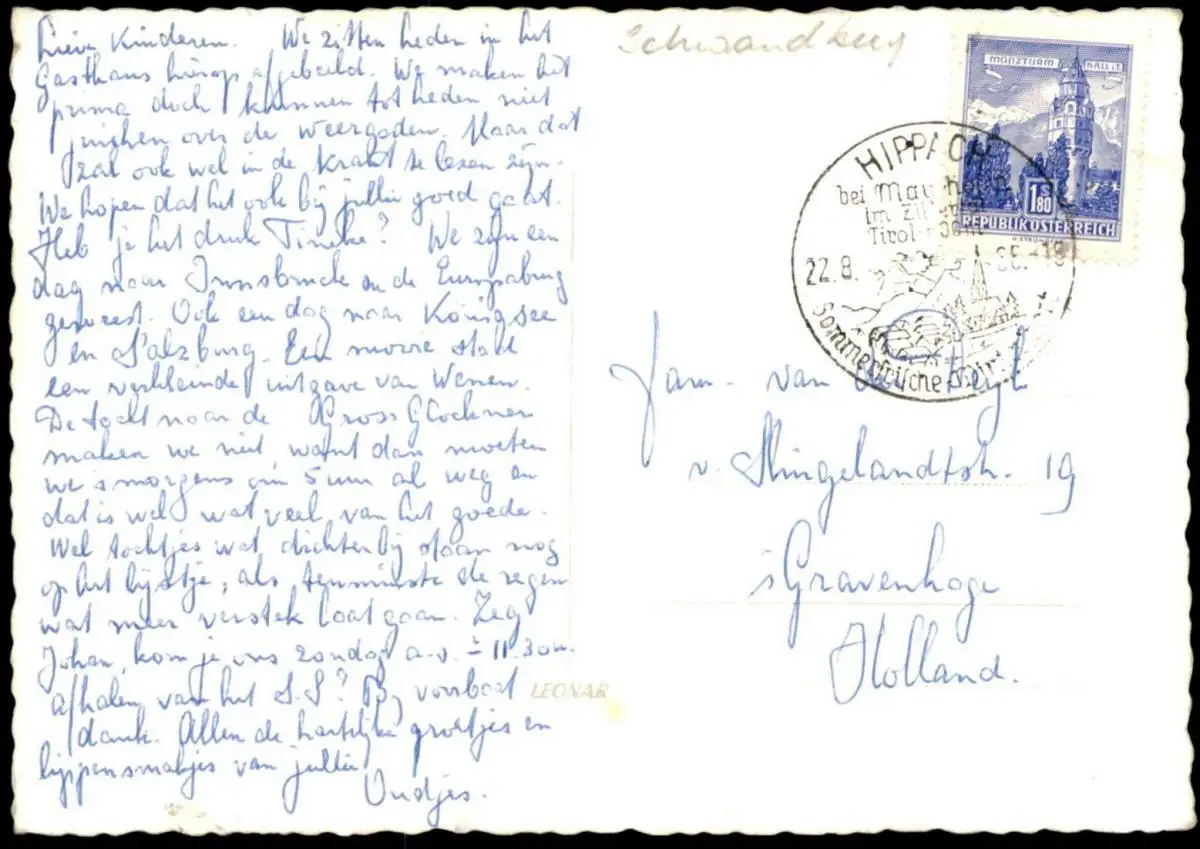 Lieve Kinderen. We zitten heden in het
Gasthaus hierop afgebeeld. We maken het
prima doch kunnen tot heden niet
juichen over de weergoden. Maar dat
zal ook wel in de krant te lezen zijn.
We hopen dat het ook bij jullie goed gaat.
Heb je het druk Tineke? We zijn een
dag naar Innsbruck en de Europabrug
geweest. Ook een dag naar Königsee
en Salzburg. Een mooie stad
een verkleinde uitgave van Wenen.
De tocht naar de Gross Glockner
maken we niet, want dan moeten
we smorgens om 5 uur al weg en
dat is wel wat veel van het goede.
Wel tochtjes wat dichterbij staan nog
op het lijstje, als tenminste de regen
wat meer verstek laat gaan. Zeg
Johan, kom je ons zondag a.s. ± 11.30 u.
afhalen van het S.S? Bij voorbaat
dank. Allen de hartelijke groetjes en
lippensmakjes van jullie
Oudjes.
LEONAR
Schwandberg
MÜNZTURM HALL I.T.
1S80
REPUBLIK ÖSTERREICH
HIPPACH
bei Mayrhofen
im Zillertal
Tirol
22.8. 65.-19
Sommerfrische
Fam. van
v. Slingelandtstr. 19
sGravenhage
Holland.